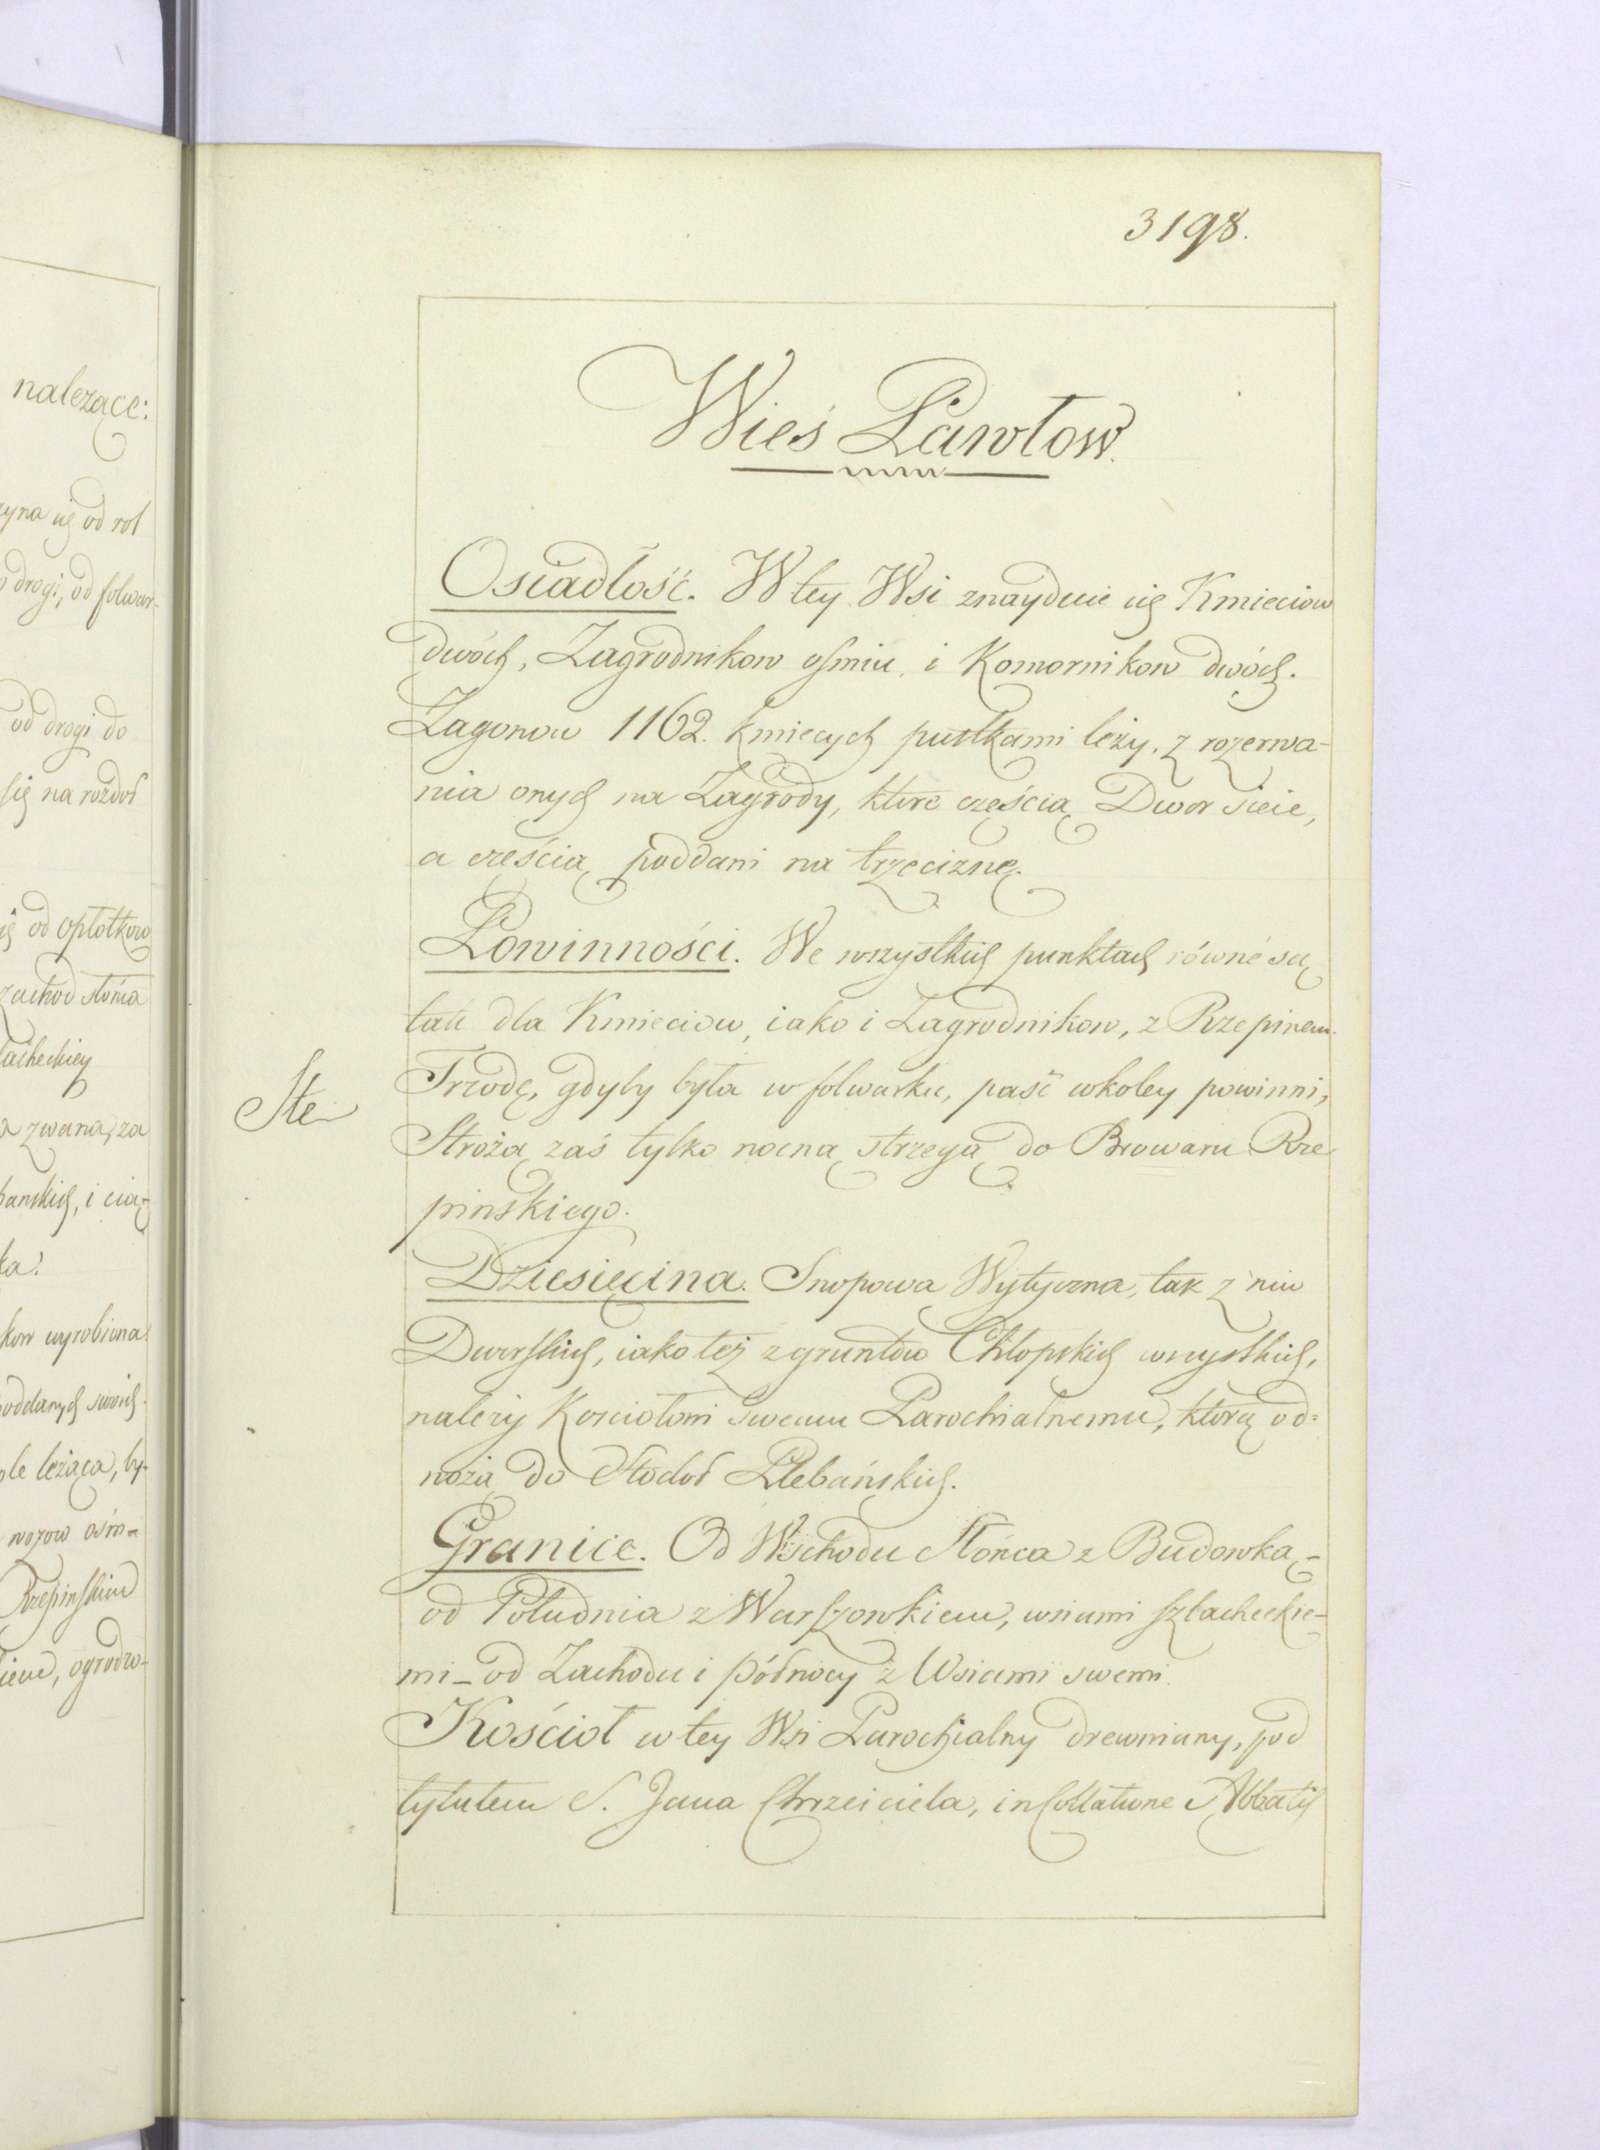 3198.
nalezące:
Wieś Pawłow.
yna się od rol
drogi, od folwar-
Osiadłość. W tey Wsi znayduie się Kmieciow
dwóch, Zagrodnikow ośmiu, i Komornikow dwóch.
od drogi do
Zagonow 1162. kmiecych pustkami leży, z rozerwa-
się na rozdoł
nia onych na Zagrody, ktore częścią Dwor sieie,
a częścią poddani na trzeciznę.
od opłotkow
Powinności. We wszystkich punktach równe są
zachod słońca
tak dla Kmieciow, iako i Zagrodnikow, z Rzepinem.
lacheckiey
Trzodę, gdyby była w folwarku, paść wkoley powinni,
Ste
zwana, za
Strożą zaś tylko nocną strzegą do Browaru Rze
pańskich, i cią-
pinskiego.
ka.
Dziesięcina. Snopowa Wytyczna, tak z niw
kow wyrobiona
Dworskich, iako też z gruntow Chłopskich wszystkich,
poddanych swoich.
należy Kosciołowi swemu Parochialnemu, ktorą od=
ole leżąca, by-
wożą do Stodoł Plebańskich.
wozow ośm-
Granice. Od Wschodu Słońca z Budowką –
Rzepinskim
od Południa z Warszowkiem, wsiami szlacheckie-
iem, ogrodzo-
mi – od Zachodu i północy z Wsiami swemi.
Kościoł w tey Wsi Parochialny drewniany, pod
tytułem S. Jana Chrzciciela, in Collatione Abbatis